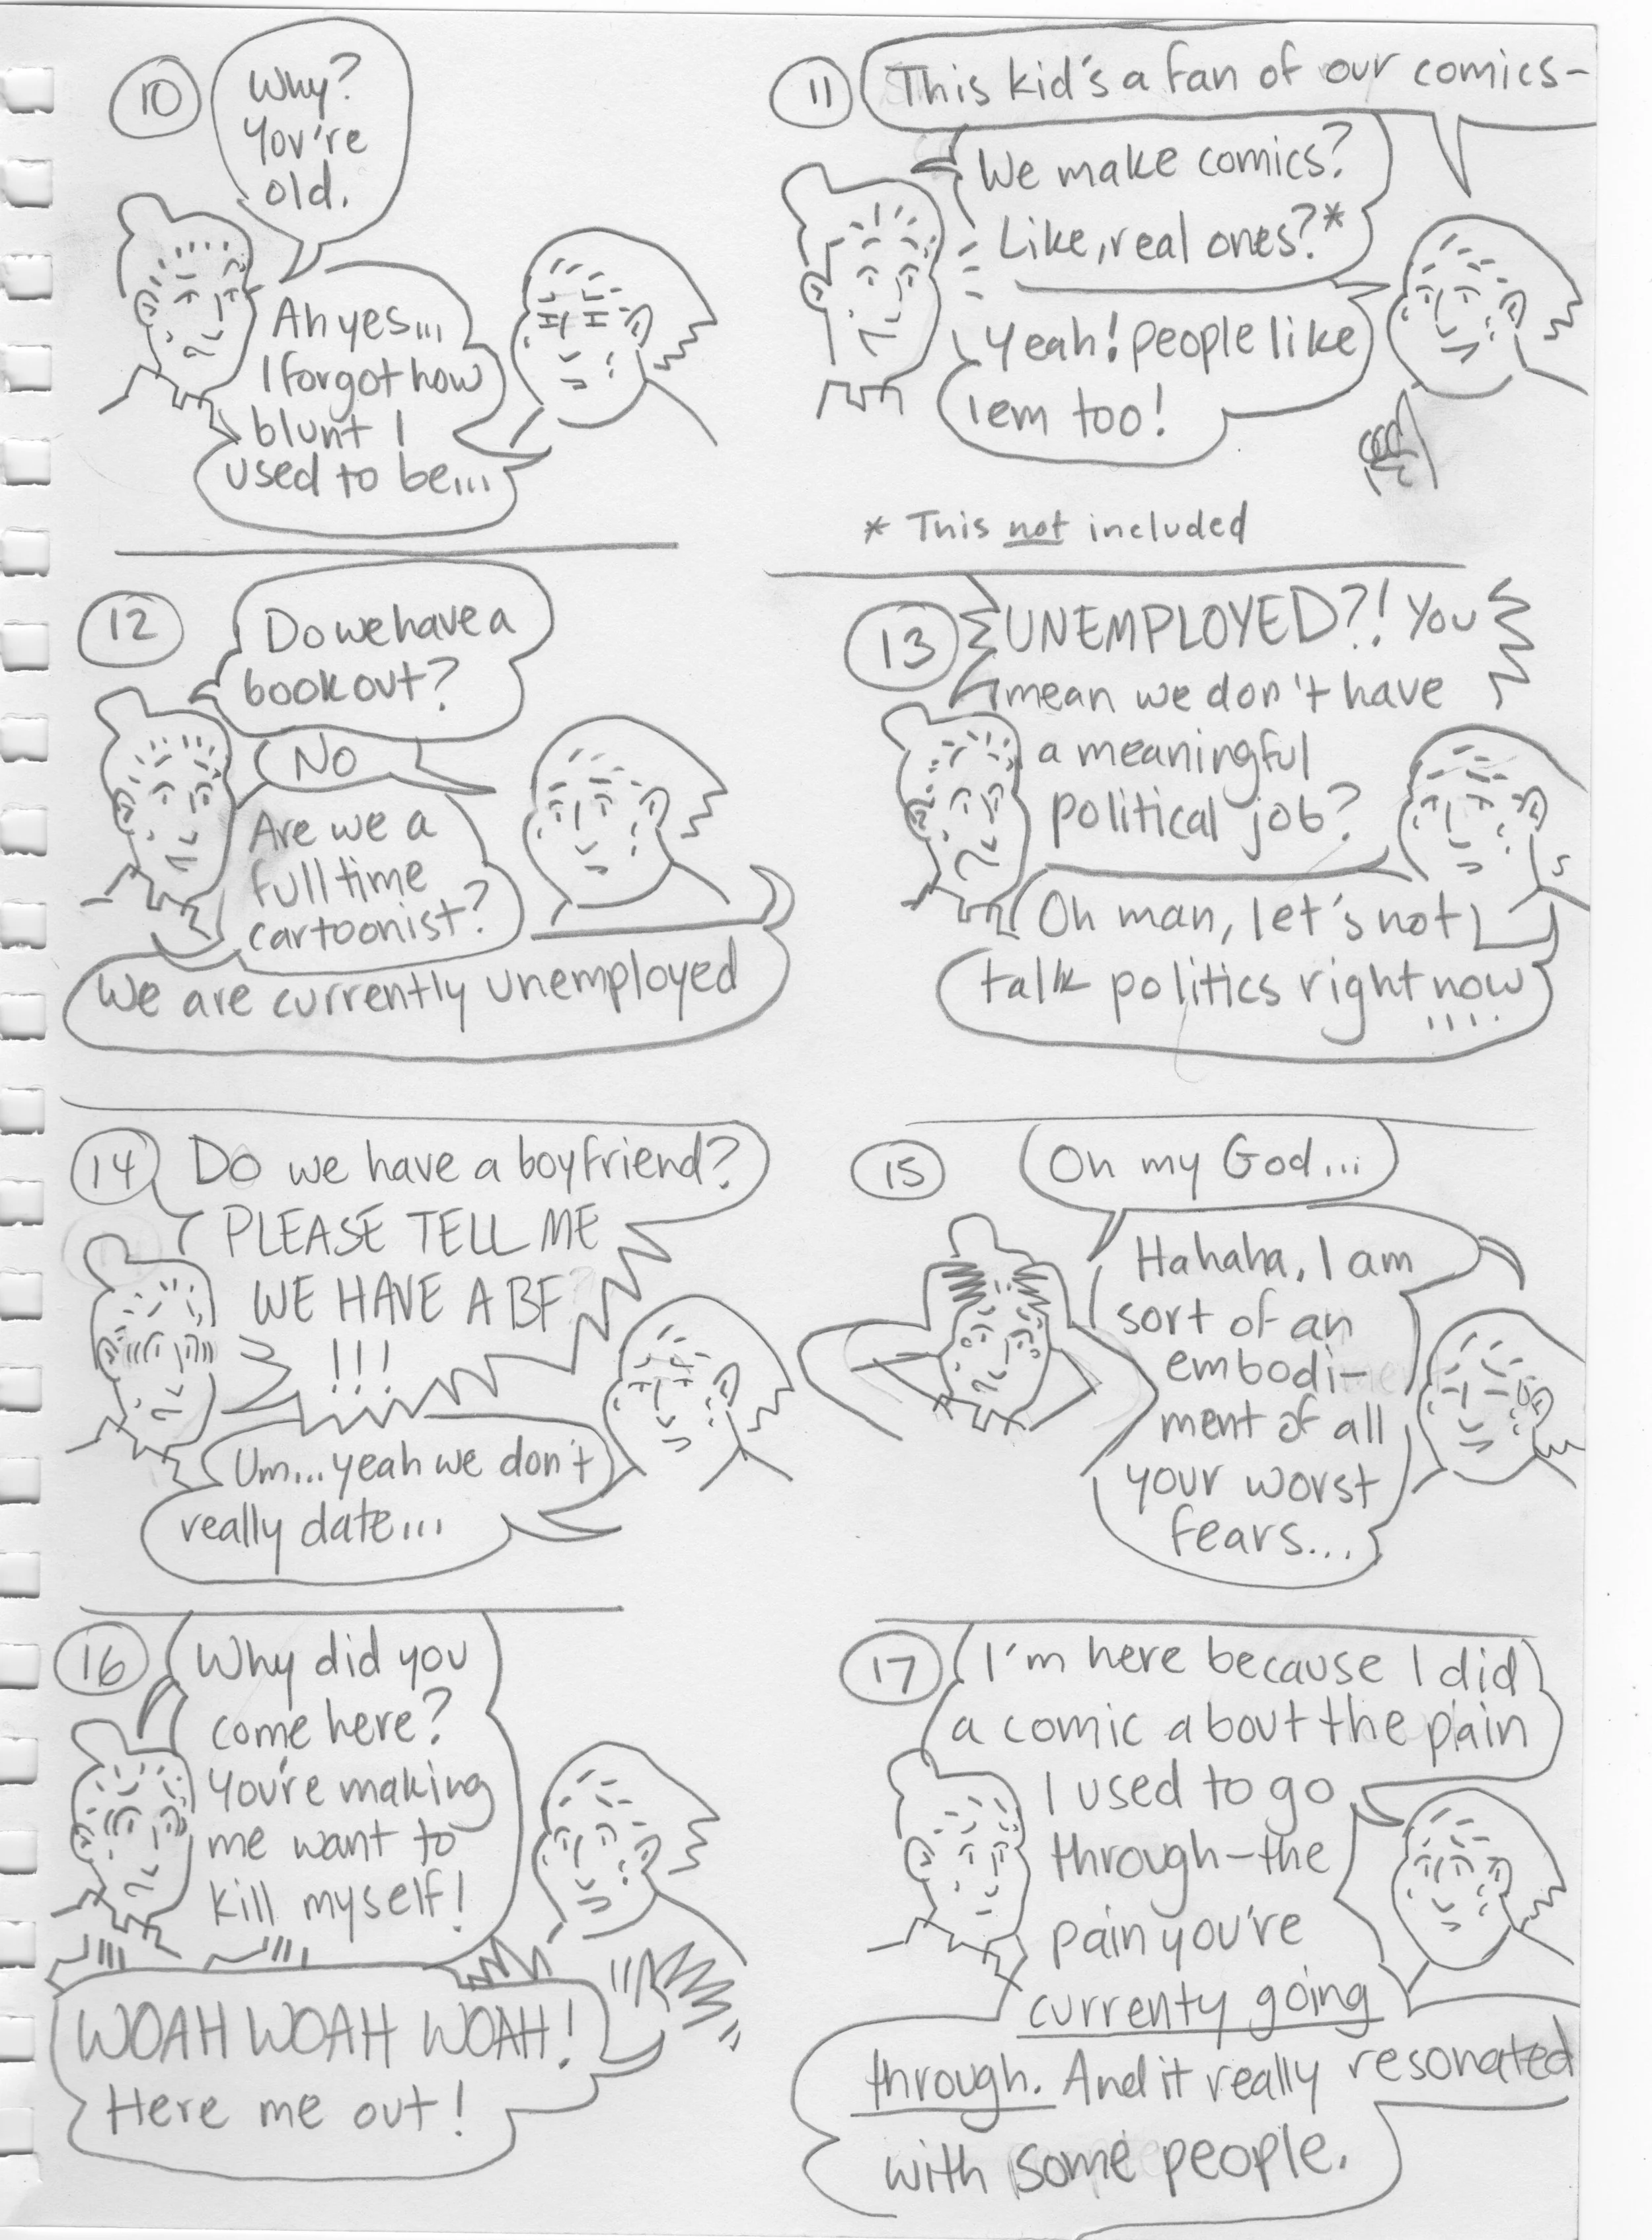 10
Why?
You're
old.
Ah yes...
I forgot how
blunt I
used to be...
11
This kid's a fan of our comics-
We make comics?
Like, real ones?*
Yeah! people like
'em too!
* This not included
12
Do we have a
book out?
No
Are we a
full time
cartoonist?
We are currently unemployed
13
UNEMPLOYED?! You
mean we don't have
a meaningful
political job?
Oh man, let's not
talk politics right now
....
14
Do we have a boyfriend?
PLEASE TELL ME
WE HAVE A BF
!!!
Um...yeah we don't
really date...
15
Oh my God...
Hahaha, I am
sort of an
embodi-
ment of all
your worst
fears...
16
Why did you
come here?
You're making
me want to
kill myself!
WOAH WOAH WOAH!
Here me out!
17
I'm here because I did
a comic about the pain
I used to go
through-the
pain you're
currenty going
through. And it really resonated
with some people.